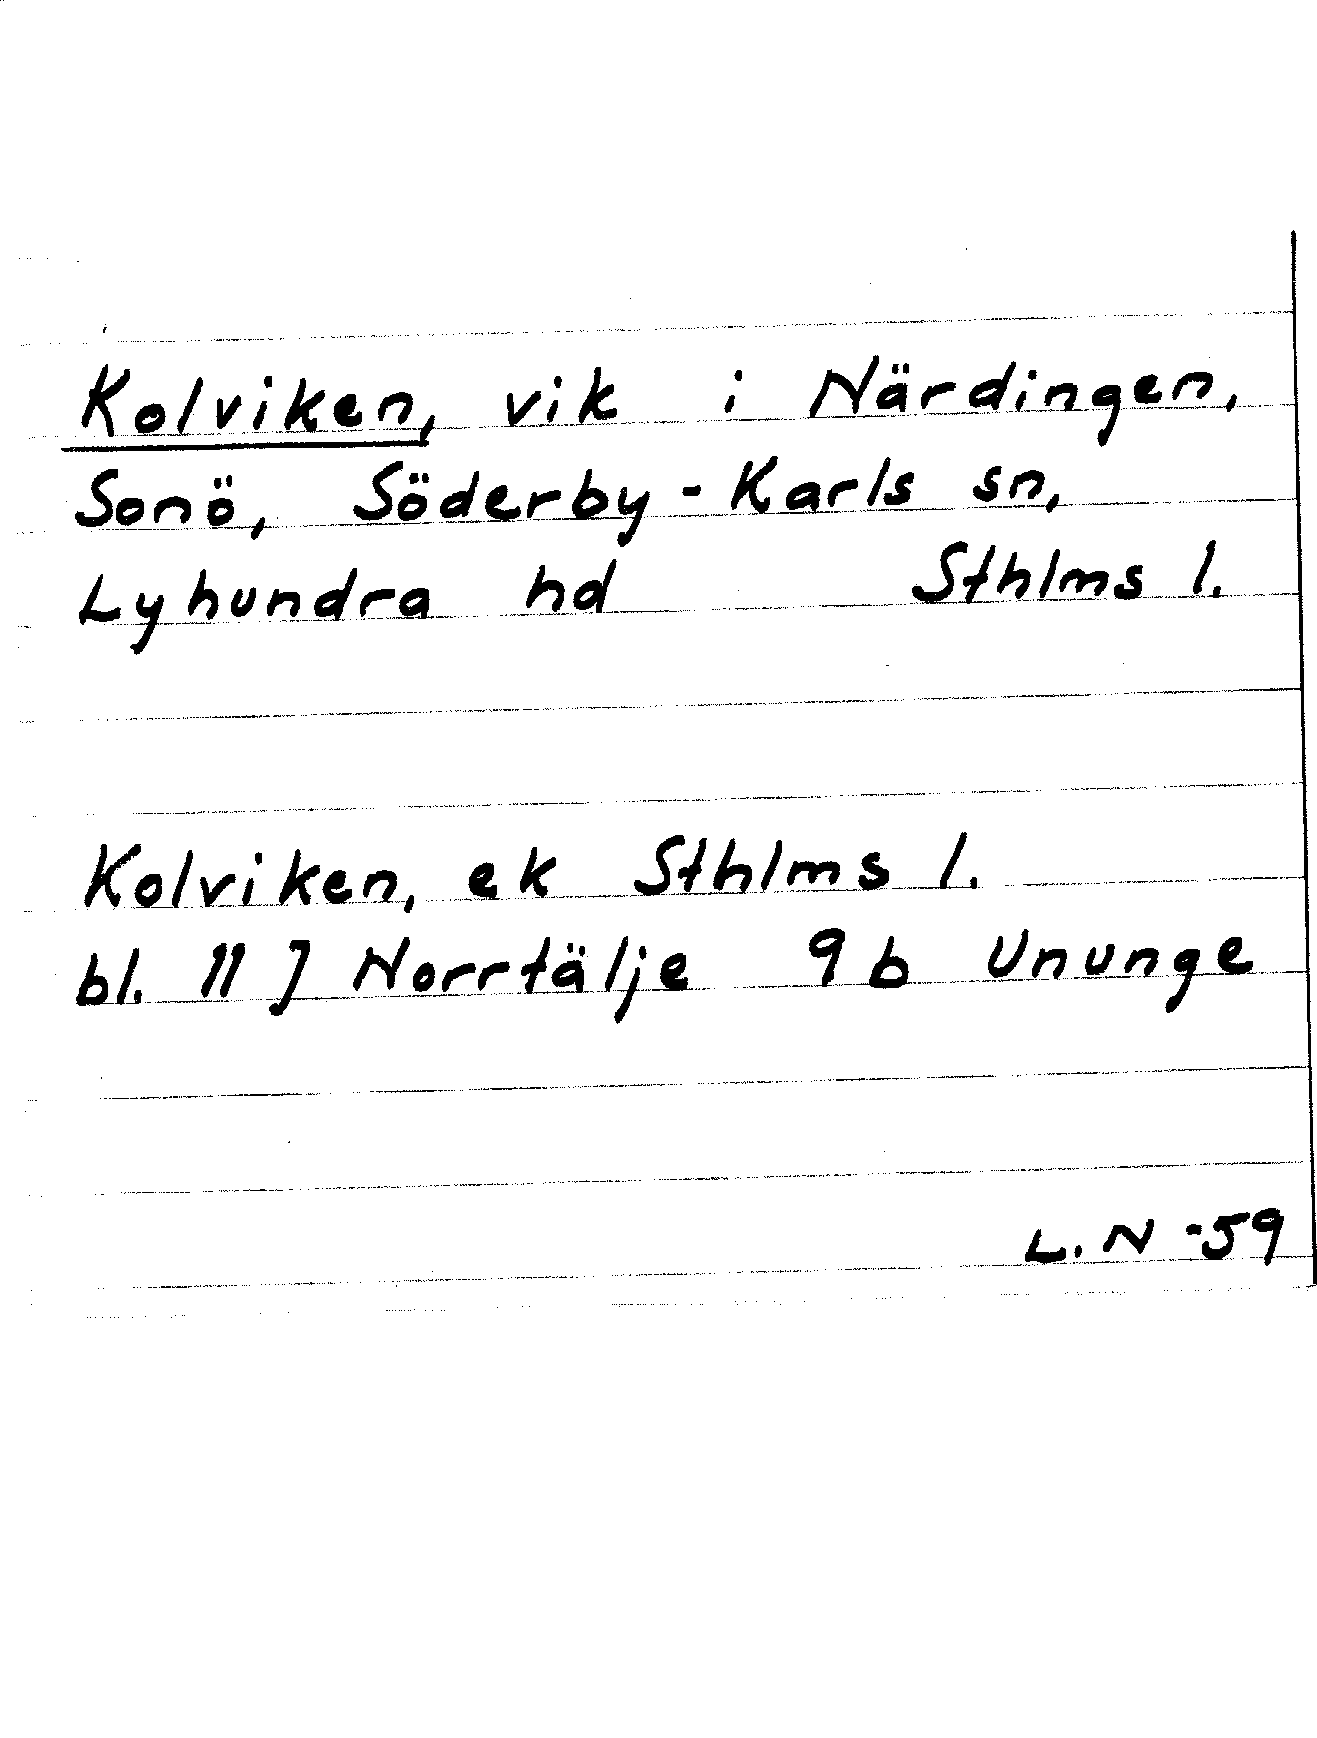 Kolviken, vik i Närdingen,
Sonö, Söderby-Karls sn,
Lyhundra hd Sthlms l.
Kolviken, ek Sthlms l.
bl. 11 J Norrtälje 9 b Ununge
L. N -59